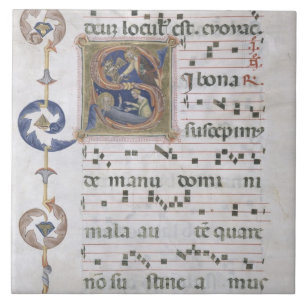 deus locutus est. evovae.
S I bona R
suscepimus
de manu domi ni
mala au tē quare
nō su stine a mus